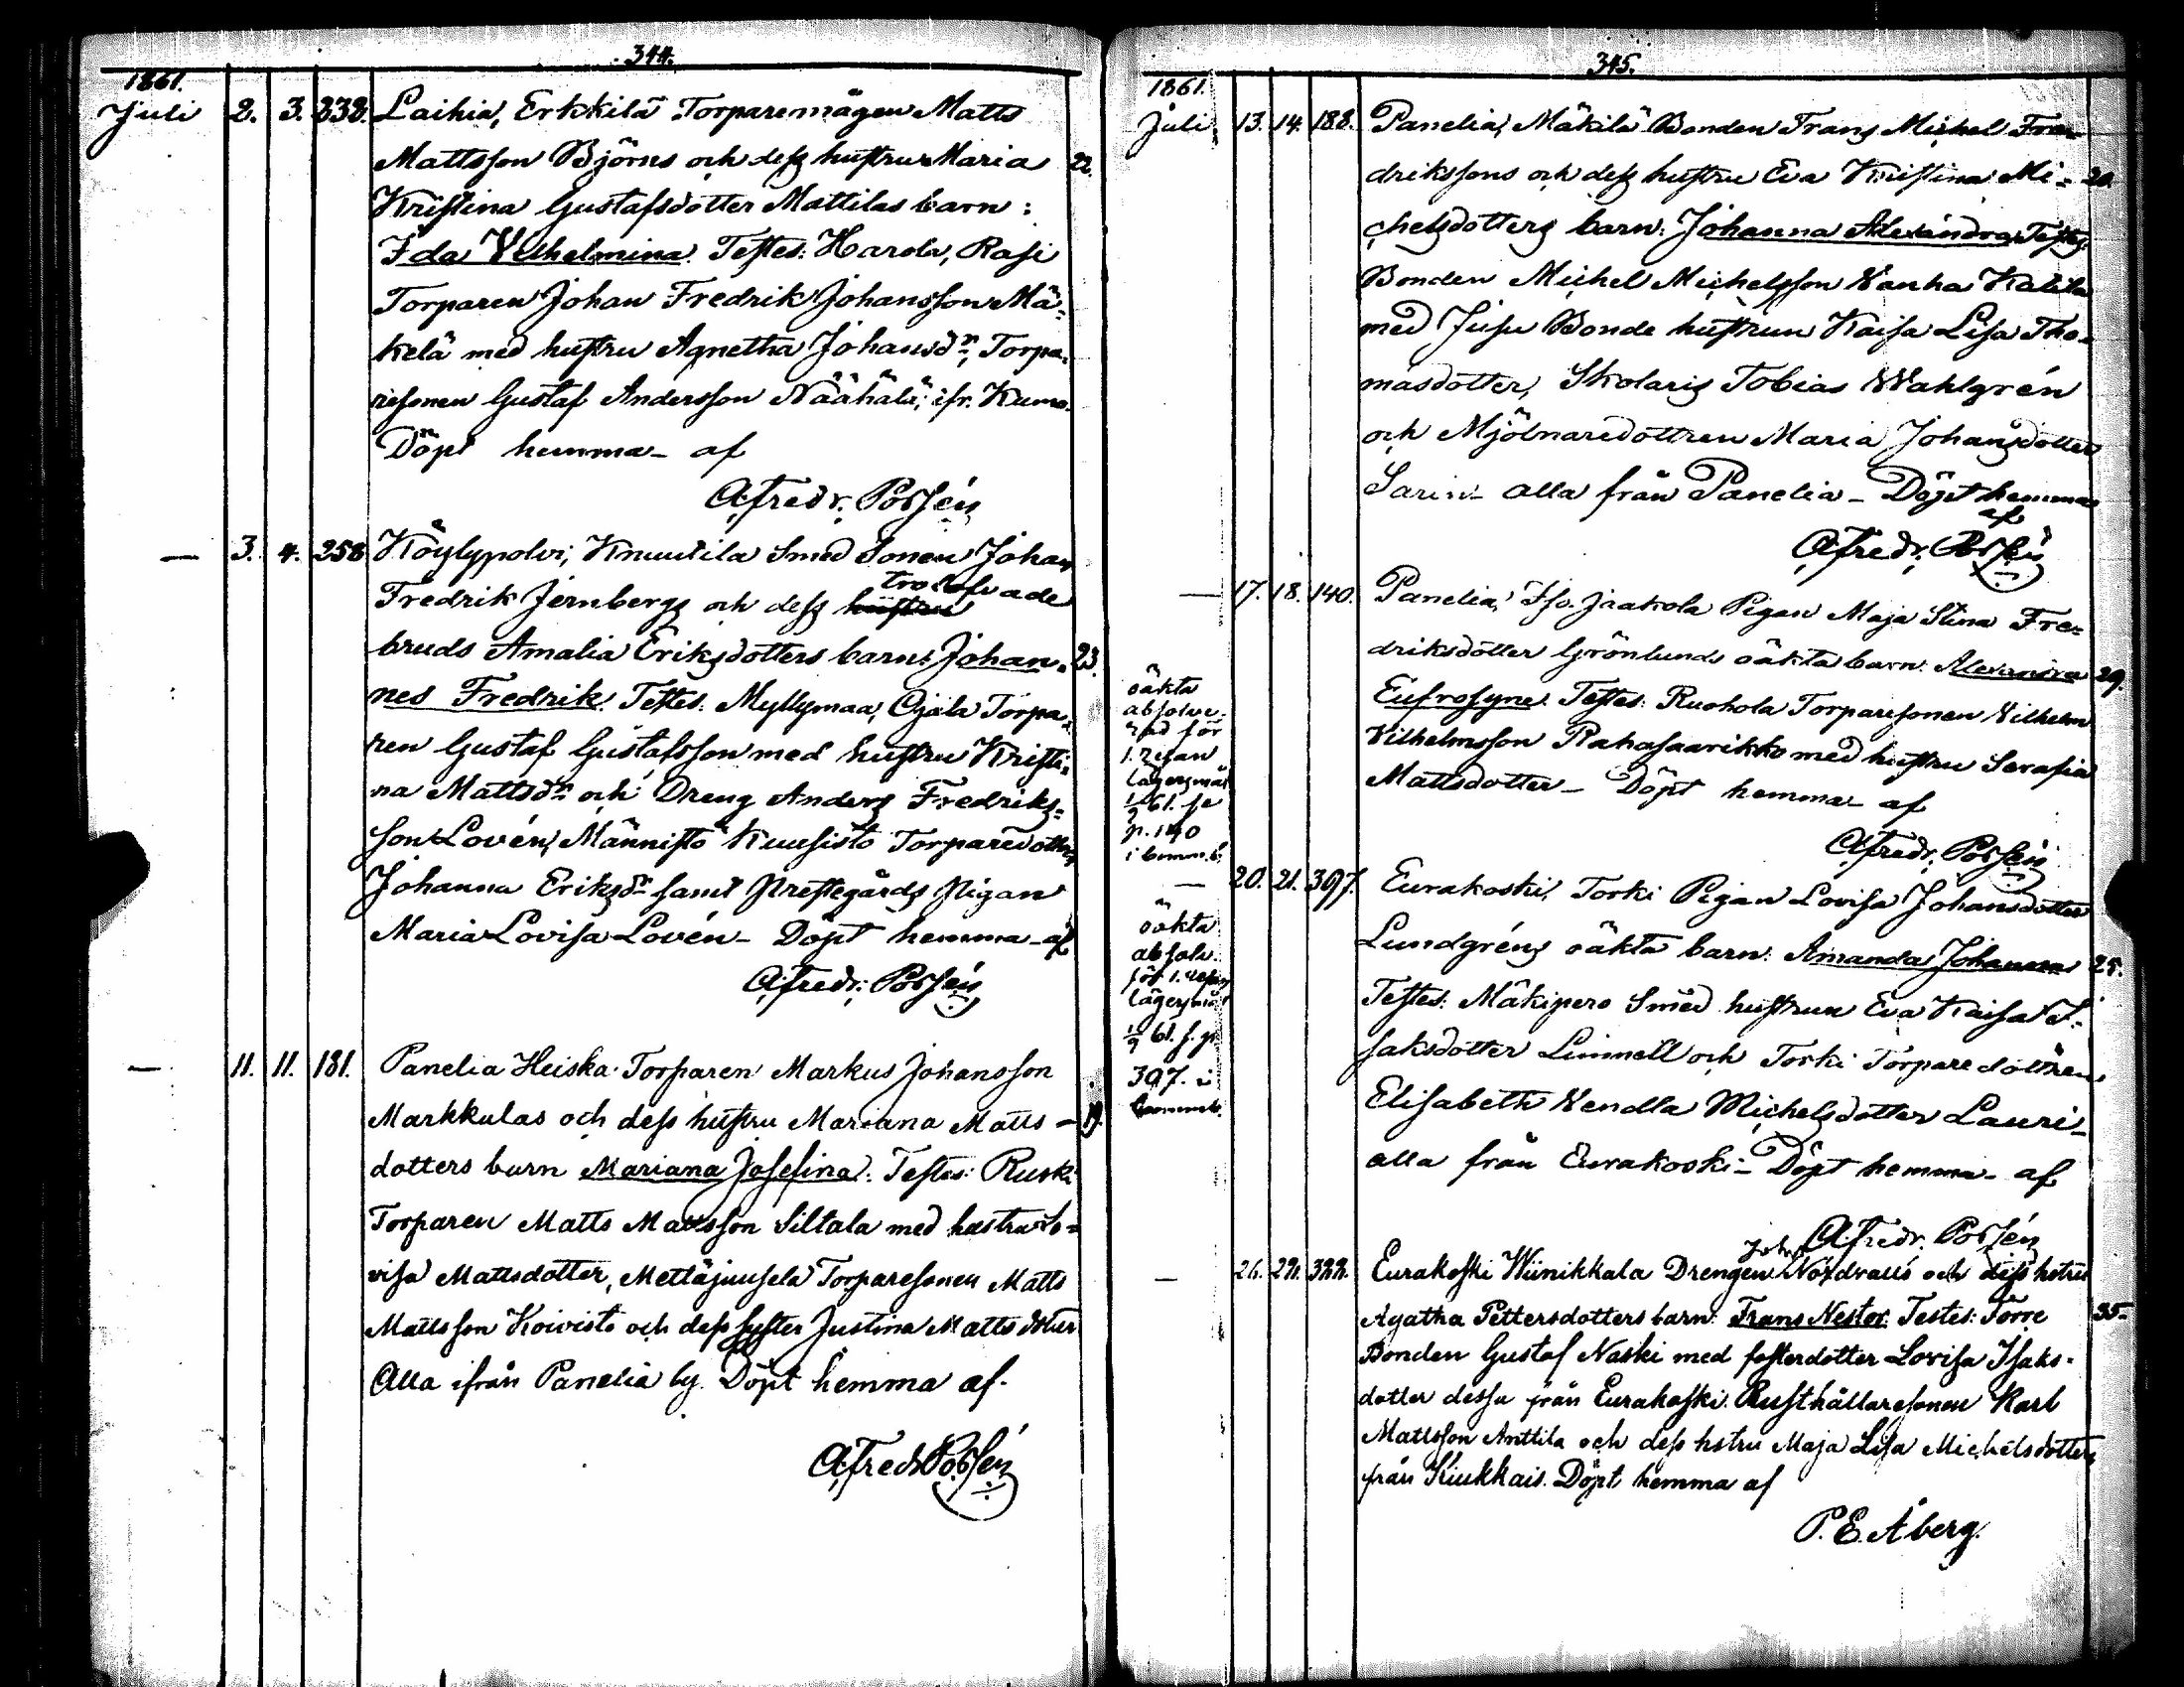 344.
1861.
Juli 2. 3. 238. Laihia, Erkkilä Torparemågen Matts
Mattsson Björns och dess hustru Maria 22.
Kristina Gustafsdotter Mattilas barn:
Ida Vilhelmina. Testes: Harola, Rasi
Torparen Johan Fredrik Johansson Mä-
kelä med hustru Agnetha Johansdr, Torpa-
resonen Gustaf Andersson Näähälä, ifr. Kumo.
Döpt hemma af
A. Fredr. Porsén
— 3. 4. 258 Köylypolvi, Knuutila Smed Sonen Johan
Fredrik Jernbergs och dess hustru trolofvade
bruds Amalia Eriksdotters barn: Johan- 23.
nes Fredrik. Testes: Myllymaa, Ojala Torpa-
ren Gustaf Gustafsson med hustru Kristi-
na Mattsdr och Dreng Anders Fredriks-
son Lovén, Männistö Kuusisto Torparedottren
Johanna Eriksdr samt Prestegårds Pigan
Maria Lovisa Lovén - Döpt hemma - af
A. Fredr. Porsén
— 11. 11. 181. Panelia Heiska Torparen Markus Johansson
Markkulas och dess hustru Mariana Matts-
dotters barn Mariana Josefina. Testes: Ruski
Torparen Matts Mattsson Siltala med hustru Lo-
visa Mattsdotter, Mettäjuusela Torparesonen Matts
Mattsson Koivisto och dess syster Justina Mattsdotter
Alla ifrån Panelia by. Döpt hemma af.
A. Fredr. Porsén
345.
1861.
Juli 13. 14. 188. Panelia, Mäkilä Bonden Frans Michel Fre-
drikssons och dess hustru Eva Kristina Mi- 20.
chelsdotters barn: Johanna Alexandra. Testes:
Bonden Michel Michelsson Vanha Kalila
med Jusu Bonde hustrun Kaisa Lisa Tho-
masdotter, Skolaris Tobias Wahlgrén
och Mjölnaredottren Maria Johansdotter
Sarin - alla från Panelia - Döpt hemma
af
A. Fredr. Porsén
— 17. 18. 140. Panelia, Iso Jaakola Pigan Maja Stina Fre-
driksdotter Grönlunds oäkta barn: Alexandra 29.
Eufrosyne. Testes: Ruohola Torparesonen Vilhelm
Vilhelmsson Rahasaarikko med hustru Serafia
Mattsdotter - Döpt hemma af
A. Fredr. Porsén
oäkta
absolve-
rad för
1. resan
lägersmål
61. se
p. 140
— 20. 21. 397. Eurakoski, Torki Pigan Lovisa Johansdotter
Lundgréns oäkta barn: Amanda Johanna 25.
Testes: Mäkipero Smed hustrun Eva Kaisa I-
saksdotter Limnell och Torki Torparedottren
Elisabeth Vendla Michelsdotter Lauri -
alla från Eurakoski - Döpt hemma - af
A. Fredr. Porsén
oäkta
absolv.
för 1. resan
lägersmål
61. s. p.
397. i
— 26. 28. 388. Eurakoski Wiinikkala Drengen Joh. Nordvalls och dess hstru
Agatha Pettersdotters barn: Frans Nestor. Testes: Torre 35.
Bonden Gustaf Naski med fosterdotter Lovisa Isaks-
dotter dessa från Eurakoski. Rusthållaresonen Karl
Mattsson Anttila och dess hstru Maja Lisa Michelsdotter
från Kiukkais. Döpt hemma af
P. E. Åberg.